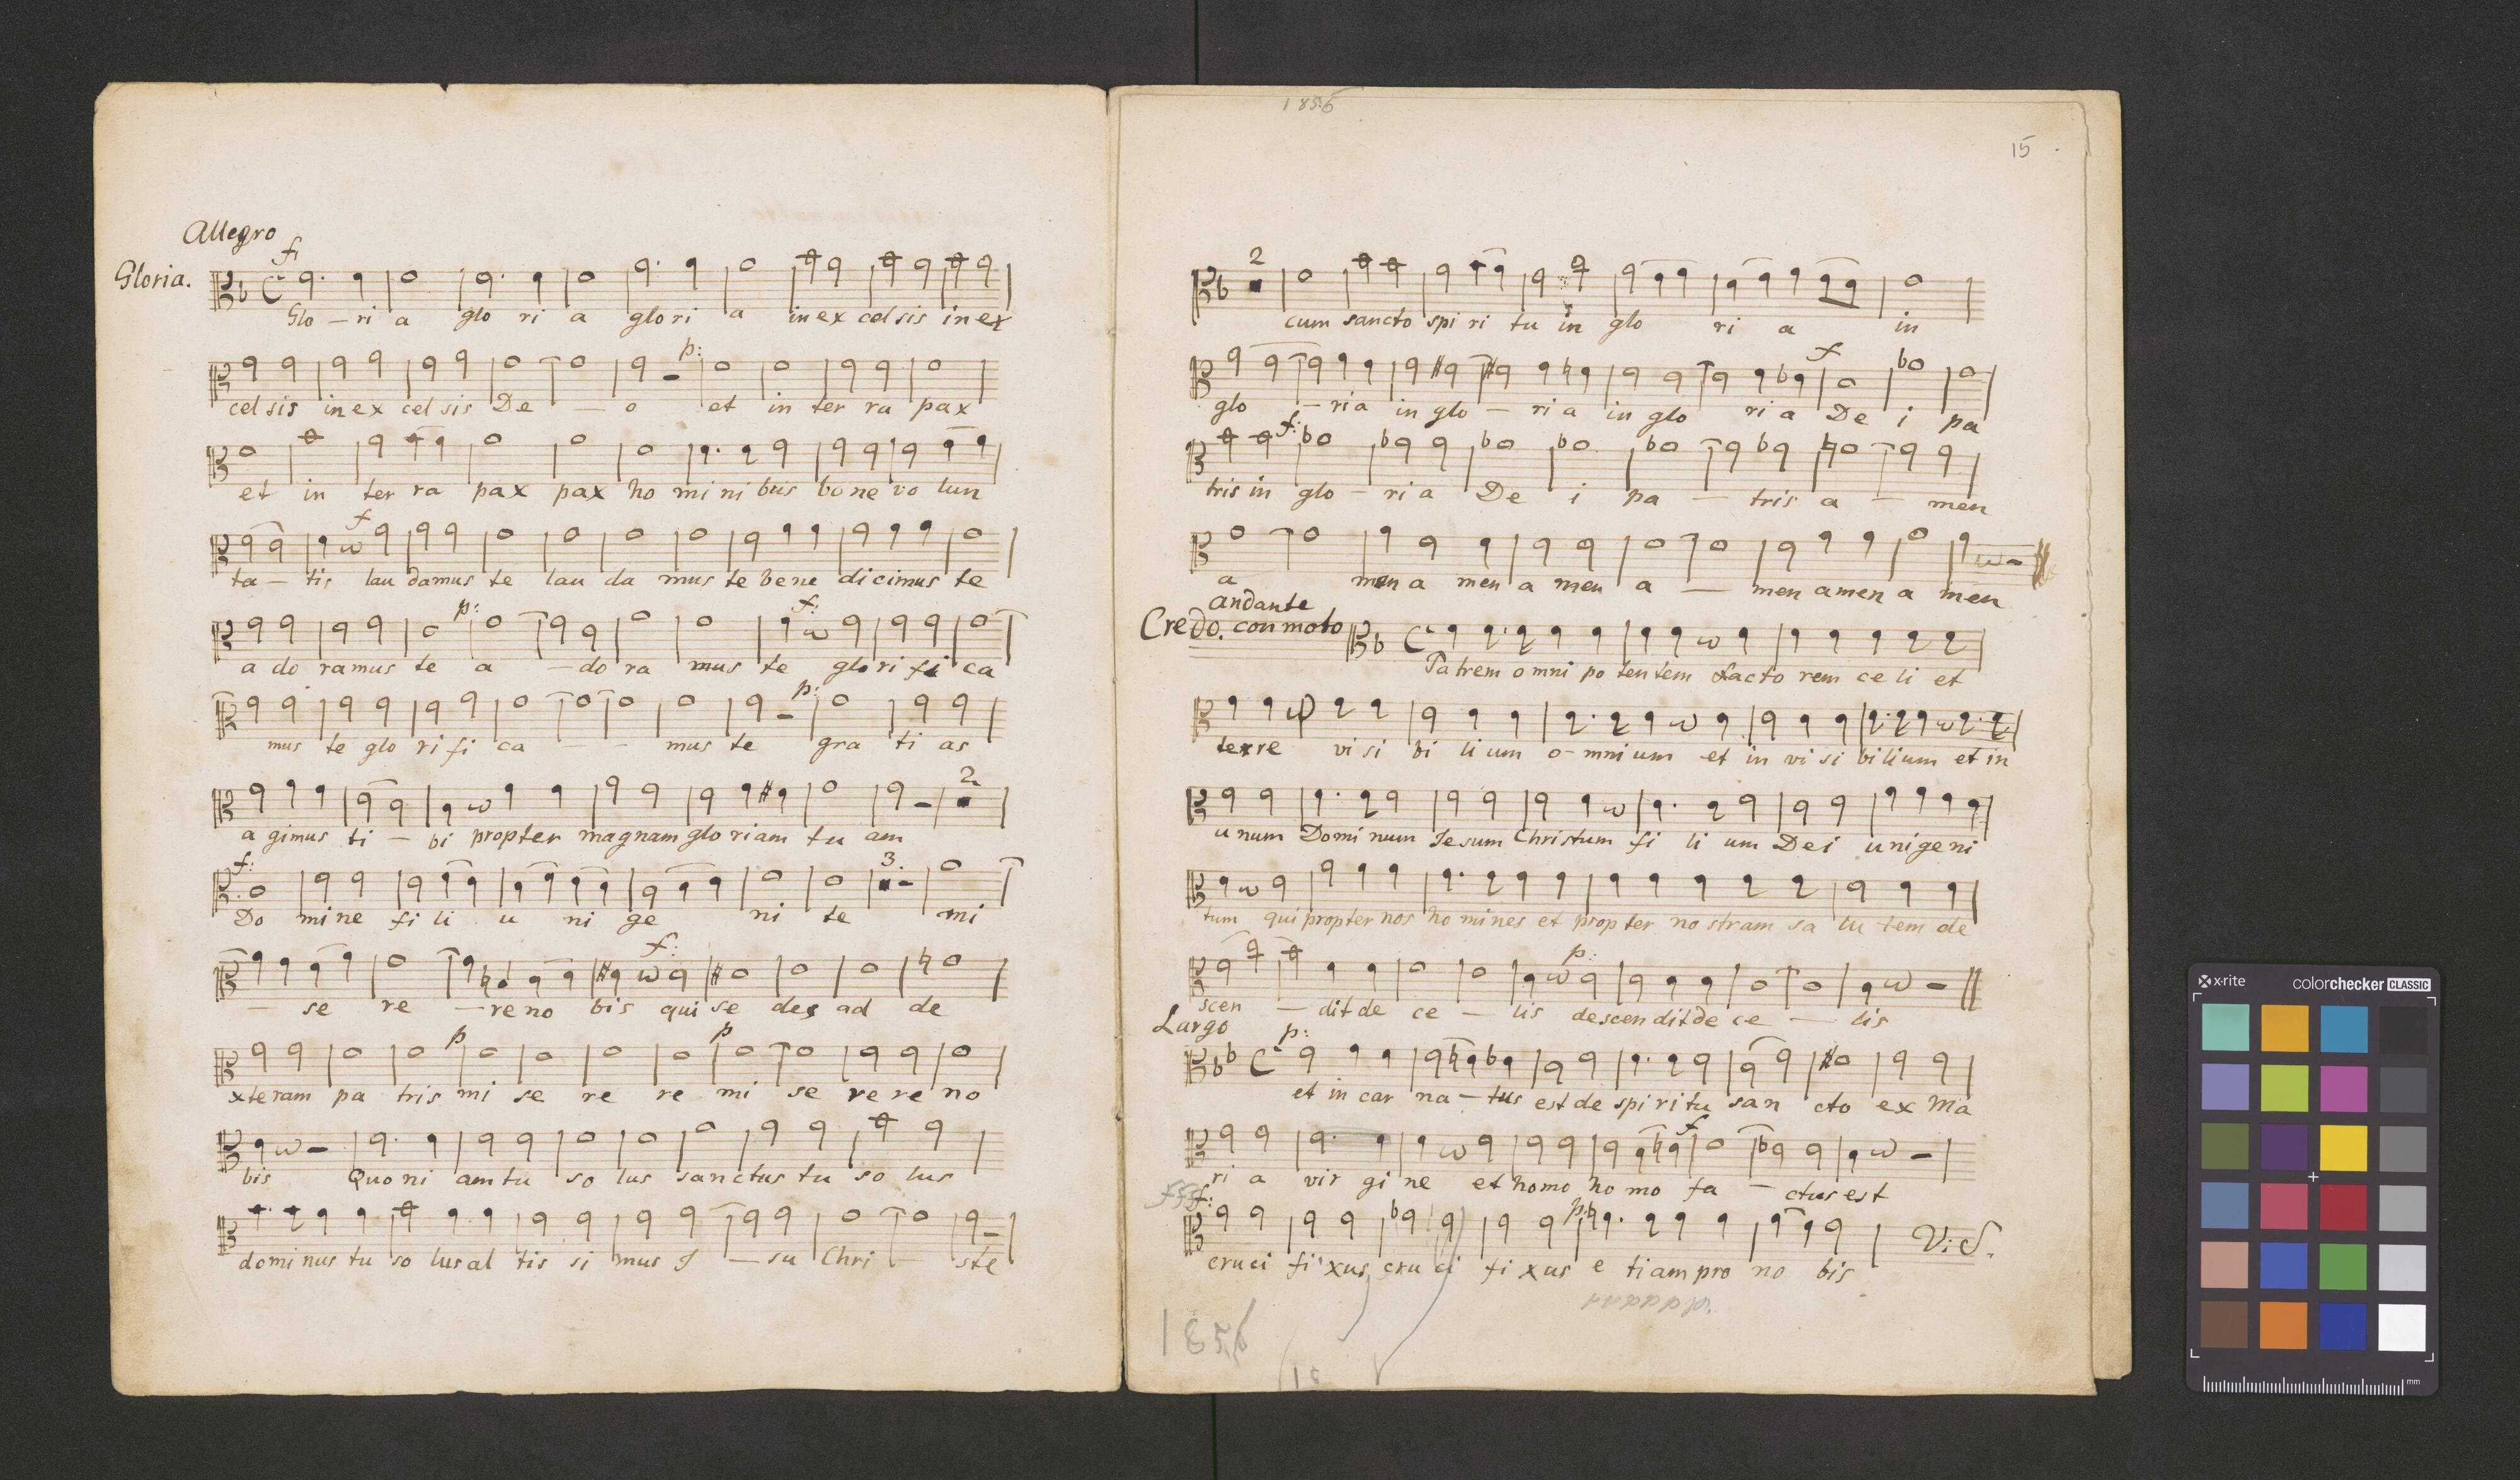 Allegro
f
Gloria.
Glo – ri a glo ri a glo ri a in ex cel sis in ex
p:
cel sis in ex cel sis De — o et in ter ra pax
et in ter ra pax pax ho mi ni bus bo ne vo lun
f
ta – tis lau damus te lau da mus te bene dicimus te
p: f:
a do ramus te a – do ra mus te glo ri fi ca
p:
mus te glo ri fi ca – – mus te gra ti as
2
a gimus ti – bi propter magnam glo riam tu am
f: 3.
Do mine fi li u ni ge ni te mi
f:
– se re – re no bis qui se des ad de
p p
xteram pa tris mi se re re mi se re re no
bis Quo ni am tu so lus sanctus tu so lus
domi nus tu so lus al tis si mus J – su Chri – ste
1856
15
2
cum sancto spi ri tu in glo ri a in
f
glo – ria in glo – ri a in glo ri a De i pa
f:
tris in glo – ri a De i pa – tris a – men
a men a men a men a — men amen a men
andante
Credo. con moto
Patrem omni po tentem factorem ce li et
terre vi si bi li um o – mnium et in vi si bilium et in
unum Dominum Jesum Christum fi li um Dei unigeni
tum qui propter nos homines et propter nostram sa lu tem de
p:
scen – dit de ce – lis descendit de ce — lis
Largo p:
et in car na – tus est de spiritu san cto ex Ma
f
ri a vir gi ne et homo homo fa – ctus est
fff f: p:
cruci fi xus cru ci fi xus e tiam pro no bis
V: S.
1856